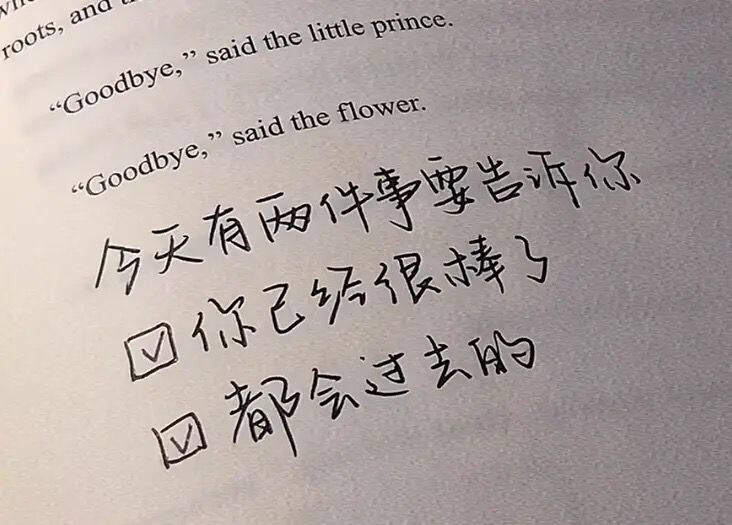 roots, and
"Goodbye," said the little prince.
"Goodbye," said the flower.
今天有两件事要告诉你
☑你已经很棒了
☑都会过去的